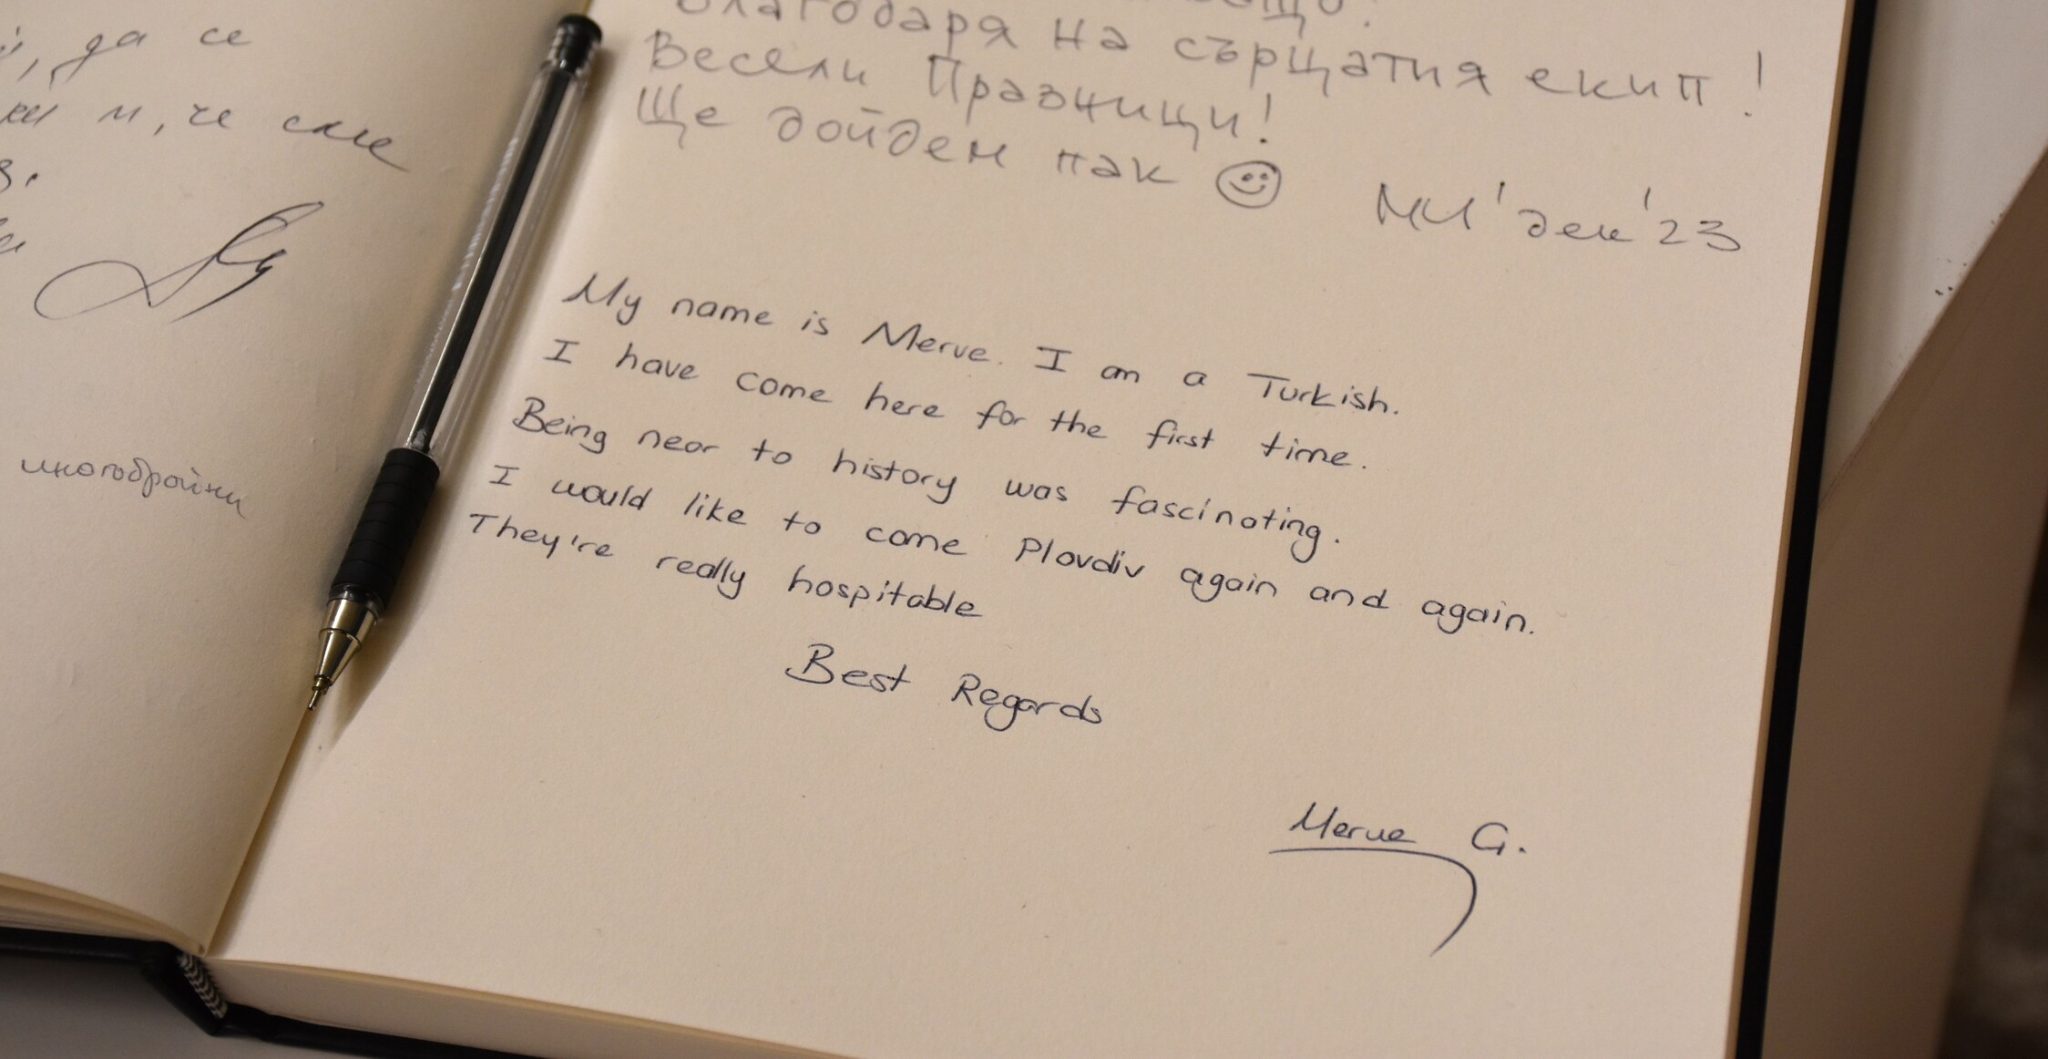 , да се
м, че сме
многобройни
Благодаря на сърцатия екип!
Весели Празници!
Ще дойдем пак ☺
МИ'дек'23
My name is Merve. I am a Turkish.
I have come here for the first time.
Being near to history was fascinating.
I would like to come Plovdiv again and again.
They're really hospitable
Best Regards
Merve G.